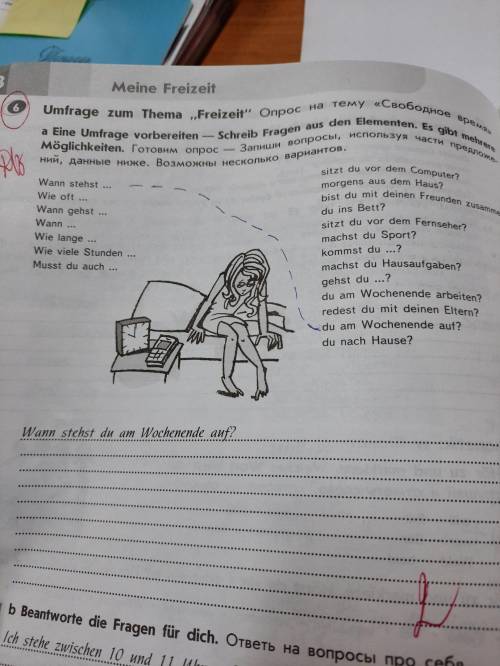 Meine Freizeit
6 Umfrage zum Thema „Freizeit“ Опрос на тему «Свободное время»
a Eine Umfrage vorbereiten — Schreib Fragen aus den Elementen. Es gibt mehrere
Möglichkeiten. Готовим опрос — Запиши вопросы, используя части предложе-
ний, данные ниже. Возможны несколько вариантов.
Wann stehst ...
Wie oft ...
Wann gehst ...
Wann ...
Wie lange ...
Wie viele Stunden ...
Musst du auch ...
sitzt du vor dem Computer?
morgens aus dem Haus?
bist du mit deinen Freunden zusamme
du ins Bett?
sitzt du vor dem Fernseher?
machst du Sport?
kommst du ...?
machst du Hausaufgaben?
gehst du ...?
du am Wochenende arbeiten?
redest du mit deinen Eltern?
du am Wochenende auf?
du nach Hause?
Wann stehst du am Wochenende auf?
b Beantworte die Fragen für dich. Ответь на вопросы про себя.
Ich stehe zwischen 10 und 11